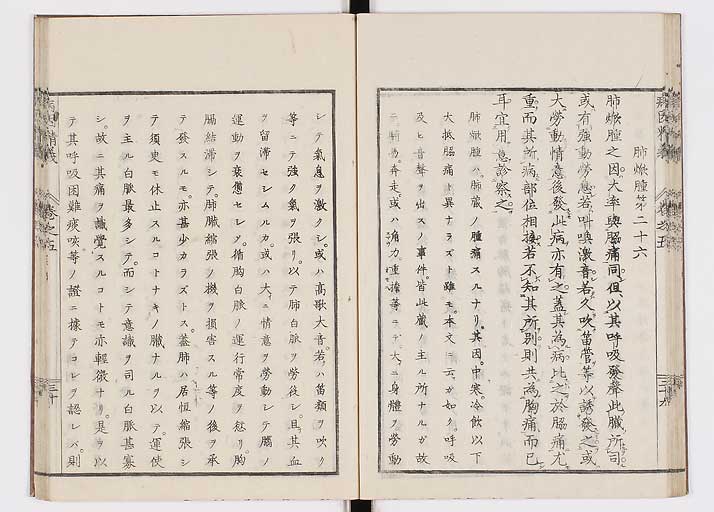 肺焮腫第二十六
肺焮腫之因大率與脇痛同但以其呼吸發聲此臟所司
或有強動勞怠若叫喚激音若久吹笛管等以誘發之或
大勞動情意後發此病亦有之蓋其為病比之於脇痛尤
重而其所病部位相接若不知其所別則共為胸痛而已
耳宜用意診察之
肺焮腫ハ肺臟ノ腫痛スルナリ其因中寒冷飲以下
大抵脇痛ト異ナラズト雖モ本文ニ云ガ如ク呼吸
及ヒ音聲ヲ出スノ事件皆此臟ノ主ル所ナルガ故
奔走或ハ角力重擔等ニテ大ニ身體ヲ勞動
シテ氣息ヲ激クシ或ハ高歌大音若ハ笛類ヲ吹ク
等ニテ強ク氣ヲ張リ以テ肺白脈ヲ勞後シ且其血
ヲ留滯セシムルカ或ハ大ニ情意ヲ勞動シテ腦ノ
運動ヲ衰憊セシメ循胸白脈ノ運行常度ヲ愆リ胸
膈結滯シテ肺臟縮張ノ機ヲ損害スル等ノ後ヲ承
テ發スルモ亦甚少カラズトス蓋肺ハ居恒縮張シ
テ須臾モ休止スルコトナキノ臟ナルヲ以テ運使
ヲ主ル白脈最多シテ而シテ意識ヲ司ル白脈甚寡
シ故ニ其痛ヲ識覺スルコトモ亦輕微ナリ是ヲ以
テ其呼吸困難痰咳等ノ證ニ據テコレヲ認レバ則
卷之五
三十